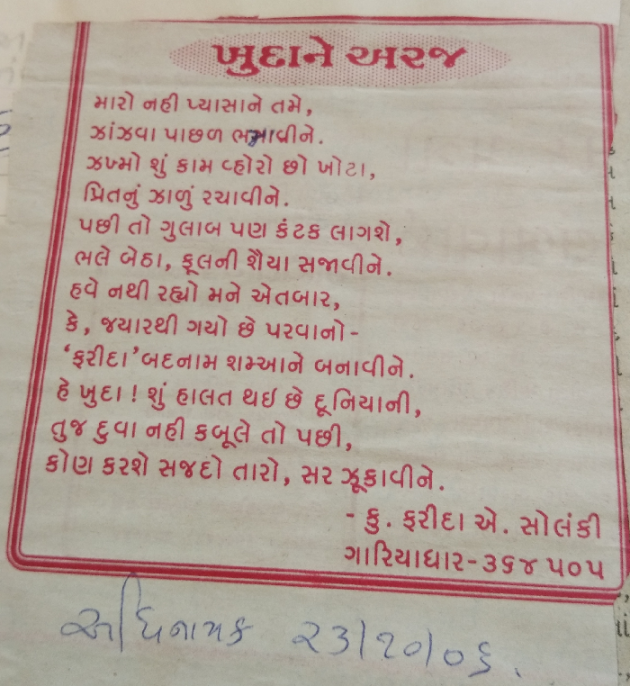 ખુદાને અરજ
મારો નહી પ્યાસાને તમે,
ઝાંઝવા પાછળ ભમાવીને.
ઝખ્મો શું કામ વ્હોરો છો ખોટા,
પ્રિતનું ઝાળું રચાવીને.
પછી તો ગુલાબ પણ કંટક લાગશે,
ભલે બેઠા, ફૂલની શૈયા સજાવીને.
હવે નથી રહ્યો મને એતબાર,
કે, જયારથી ગયો છે પરવાનો-
‘ફરીદા’ બદનામ શમ્આને બનાવીને.
હે ખુદા ! શું હાલત થઇ છે દૂનિયાની,
તુજ દુવા નહી કબૂલે તો પછી,
કોણ કરશે સજદો તારો, સર ઝૂકાવીને.
- કુ. ફરીદા એ. સોલંકી
ગારિયાધાર-૩૬૪ ૫૦૫
અધિનાયક ૨૩/૧૦/૦૬.